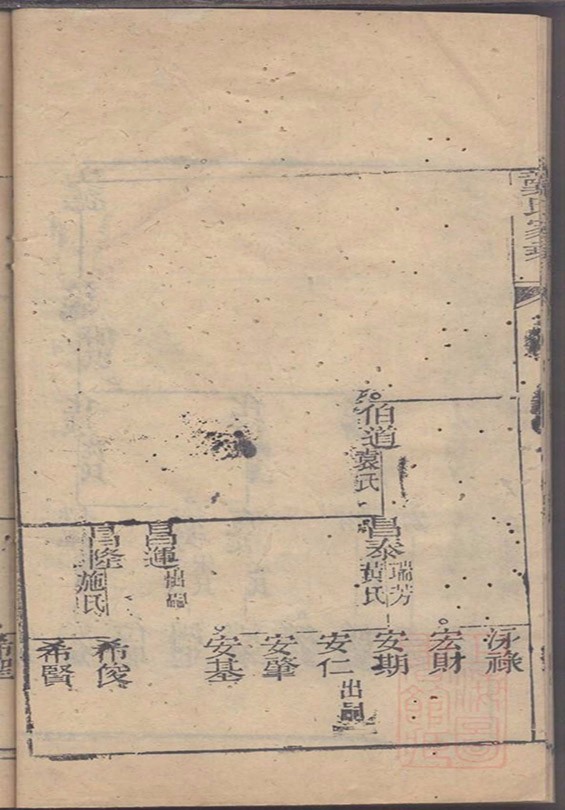 龔氏家譜
伯道
袁氏
昌泰
瑞芳
黃氏
昌運
出嗣
昌隆
施氏
宏財
安期
安仁
出嗣
安肇
安基
希俊
希賢